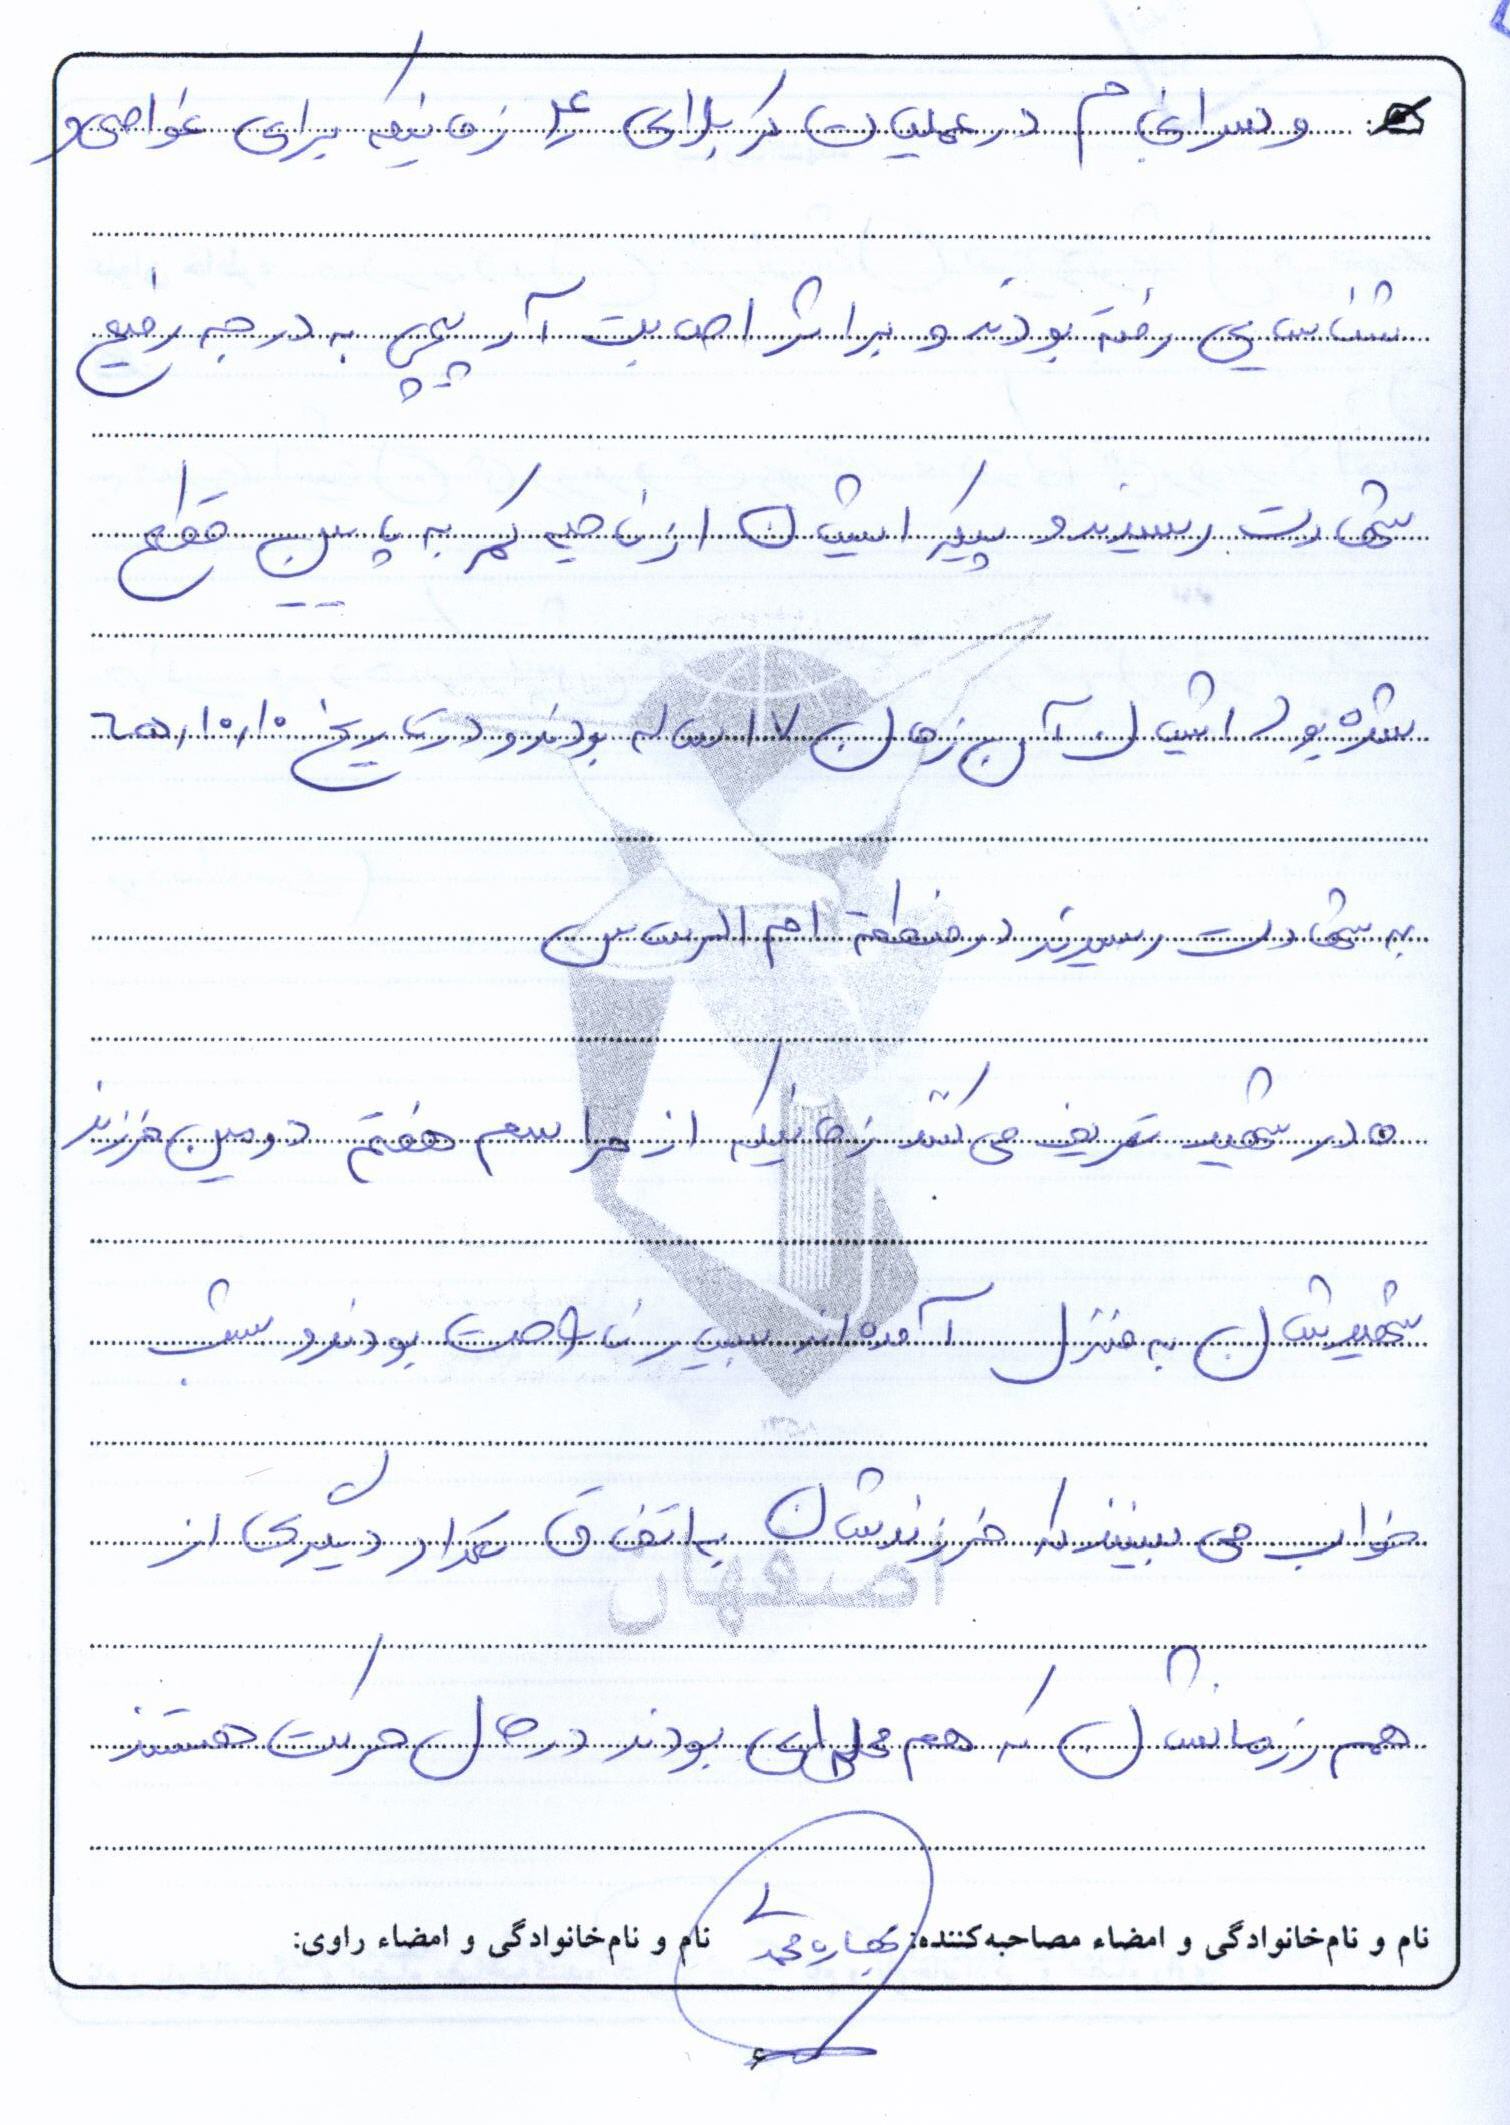 و سرانجام در عملیات کربلای ۴ زمانیکه برای غواصی و
شناسایی رفته بودند و براثر اصابت آرپیچی به درجه رفیع
شهادت رسیدند و پیکر ایشان از ناحیه کمر به پایین قطع
شده بود ایشان آن زمان ۱۷ ساله بودند و در تاریخ ۱۰/۱۰/۶۵
به شهادت رسیدند در منطقه ام الرصاص
مادر شهید تعریف می کنند زمانیکه از مراسم هفتم دومین فرزند
شهیدشان به منزل آمده اند بسیار ناراحت بودند و شب
خواب می بینند که فرزندشان به اتفاق تعداد دیگری از
هم رزمانشان که هم محله ای بودند در حال حرکت هستند
اصفهان
نام و نام‌خانوادگی و امضاء مصاحبه‌کننده: بهاره محمدی نام و نام‌خانوادگی و امضاء راوی:
۶